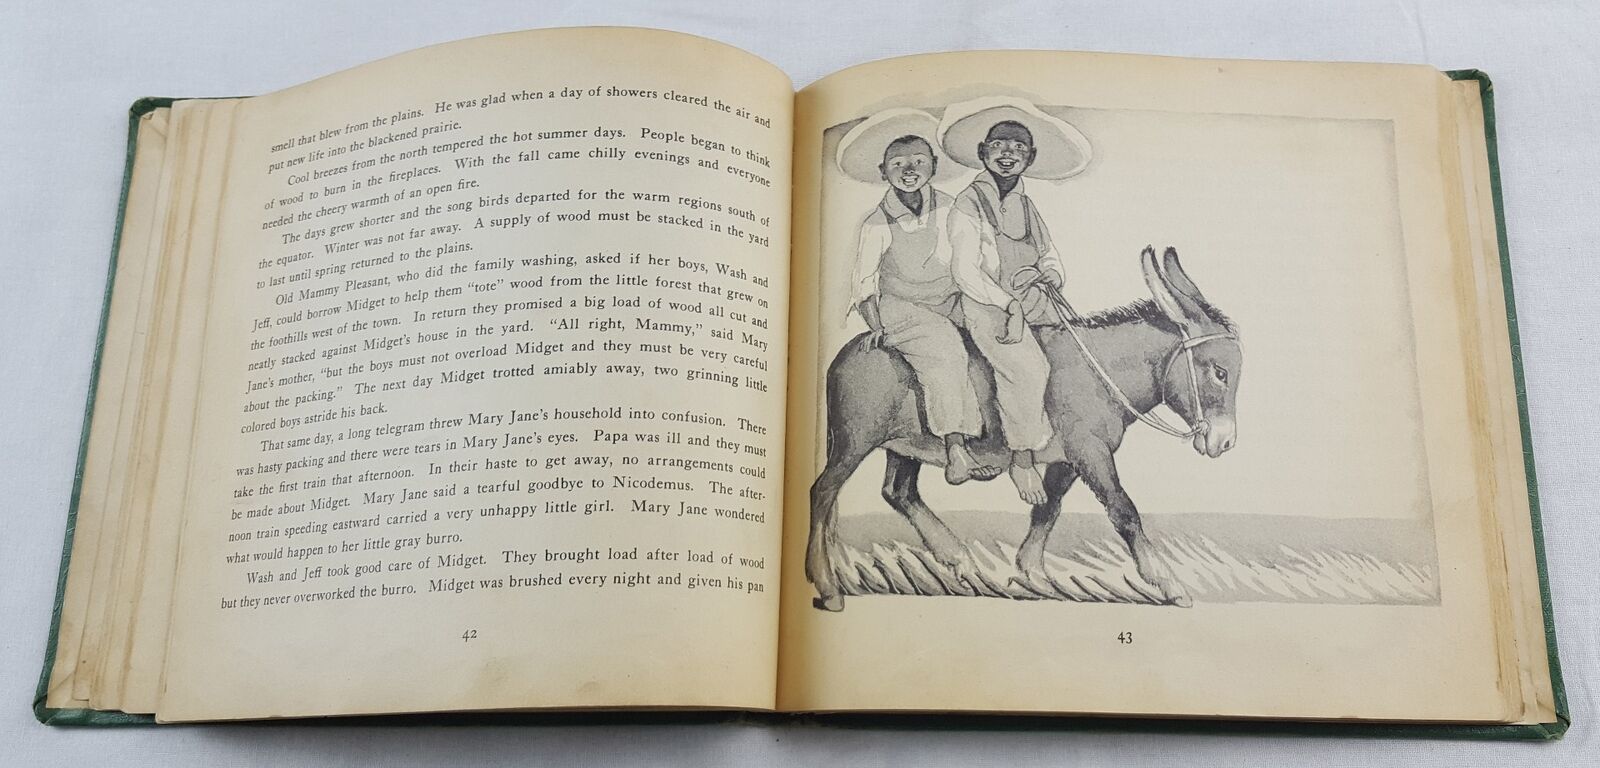 smell that blew from the plains. He was glad when a day of showers cleared the air and
put new life into the blackened prairie.
Cool breezes from the north tempered the hot summer days. People began to think
of wood to burn in the fireplaces. With the fall came chilly evenings and everyone
needed the cheery warmth of an open fire.
The days grew shorter and the song birds departed for the warm regions south of
the equator. Winter was not far away. A supply of wood must be stacked in the yard
to last until spring returned to the plains.
Old Mammy Pleasant, who did the family washing, asked if her boys, Wash and
Jeff, could borrow Midget to help them "tote" wood from the little forest that grew on
the foothills west of the town. In return they promised a big load of wood all cut and
neatly stacked against Midget's house in the yard. "All right, Mammy," said Mary
Jane's mother, "but the boys must not overload Midget and they must be very careful
about the packing." The next day Midget trotted amiably away, two grinning little
colored boys astride his back.
That same day, a long telegram threw Mary Jane's household into confusion. There
was hasty packing and there were tears in Mary Jane's eyes. Papa was ill and they must
take the first train that afternoon. In their haste to get away, no arrangements could
be made about Midget. Mary Jane said a tearful goodbye to Nicodemus. The after-
noon train speeding eastward carried a very unhappy little girl. Mary Jane wondered
what would happen to her little gray burro.
Wash and Jeff took good care of Midget. They brought load after load of wood
but they never overworked the burro. Midget was brushed every night and given his pan
42
43